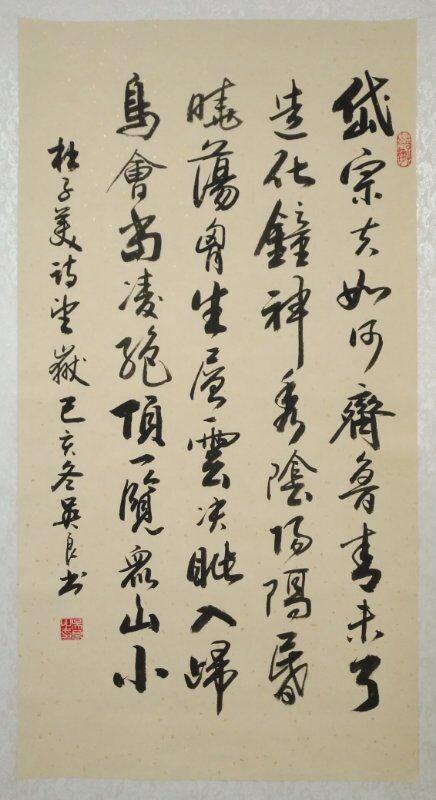 岱宗夫如何齊魯青未了
造化鐘神秀陰陽隔昏
曉蕩胸生層雲決眥入歸
鳥會當凌絕頂一覽眾山小
杜子美詩望嶽己亥冬吳良书